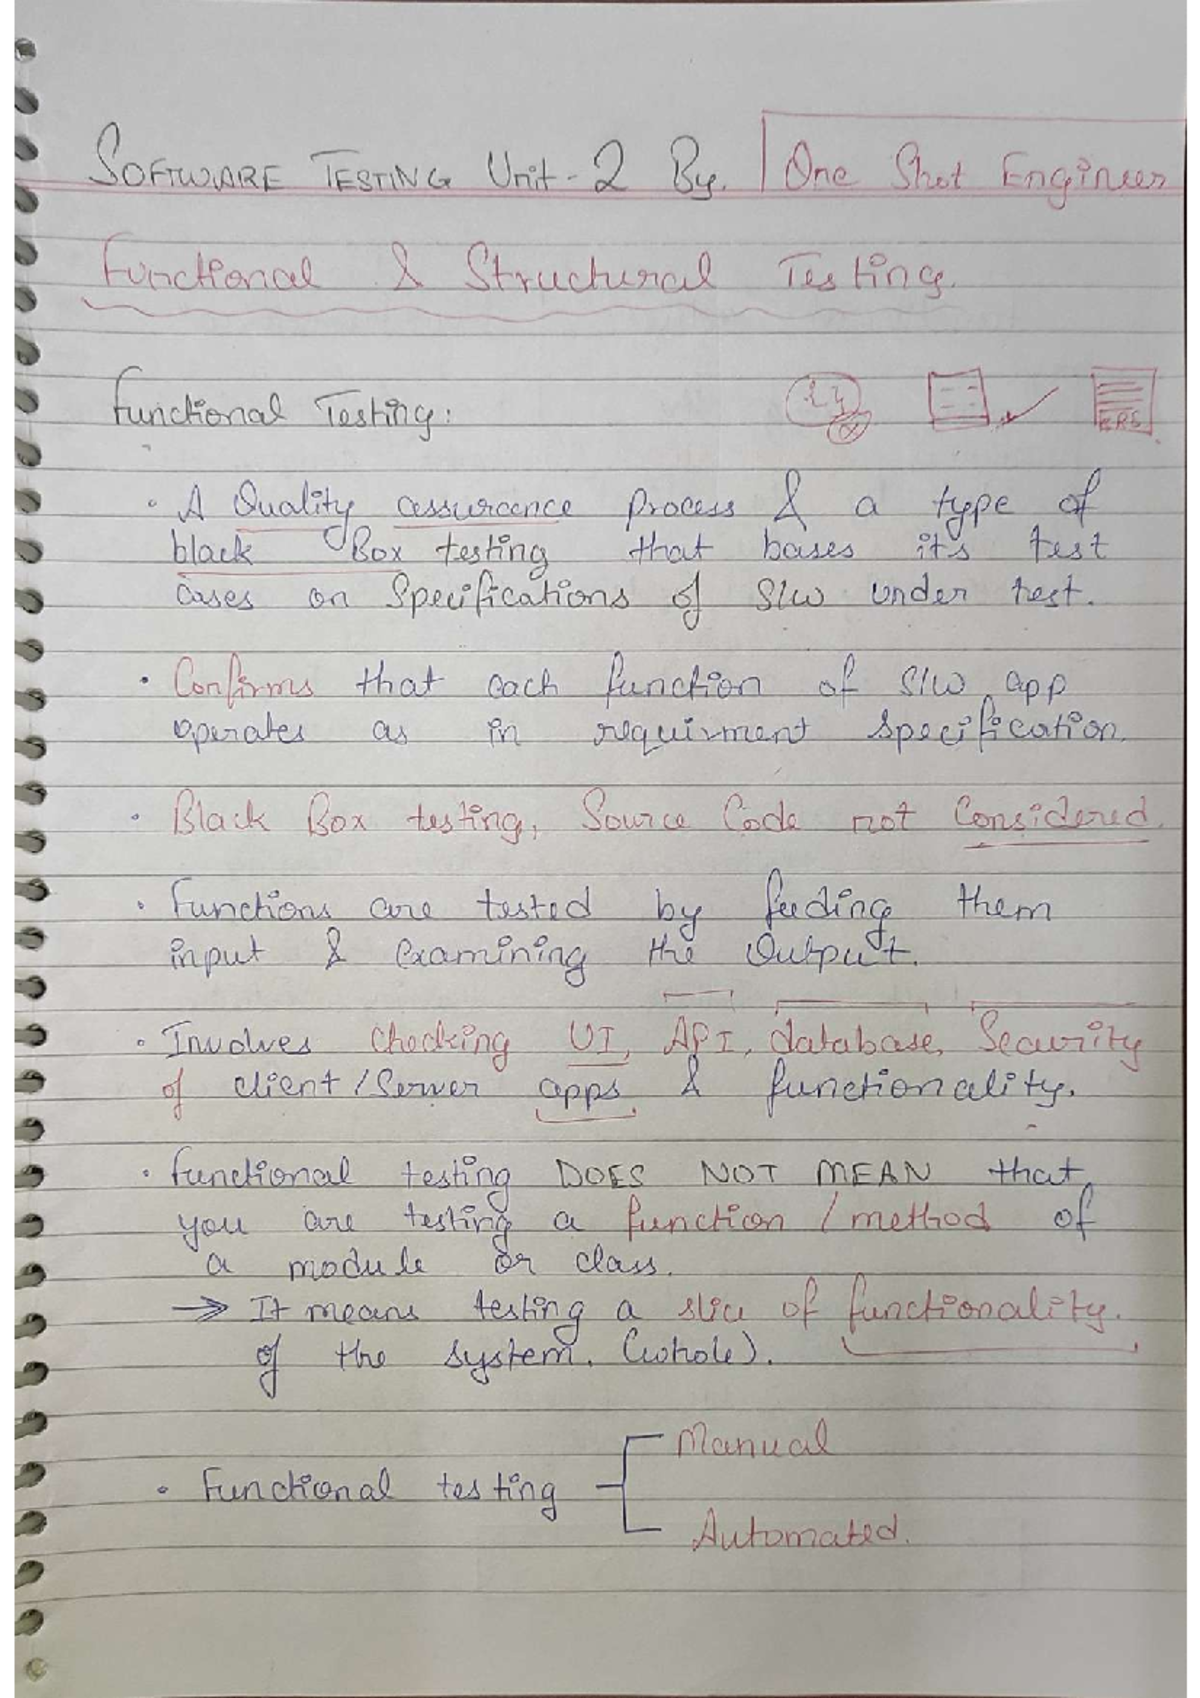 SOFTWARE TESTING Unit-2 By. One Shot Engineer
Functional & Structural Testing.
Functional Testing:
SRS
• A Quality assurance process & a type of
black Box testing that bases it's test
cases on Specifications of S/W under test.
• Confirms that each function of S/W app
operates as in requirment specification.
• Black Box testing, Source Code not Considered.
• Functions are tested by feeding them
input & examining the Output.
• Involves checking UI, API, database, Security
of client/Server apps & functionality.
• Functional testing DOES NOT MEAN that
you are testing a function / method of
a module or class.
→ It means testing a slice of functionality.
of the system. (whole).
Manual
• Functional testing
Automated.